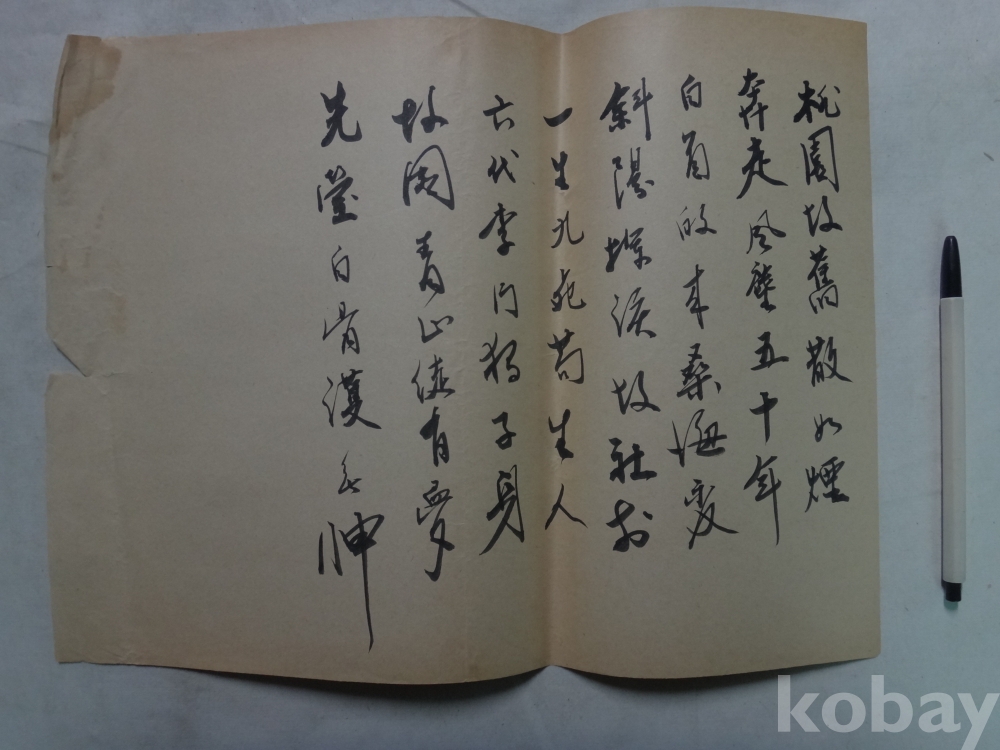 桃園故舊散如煙
奔走風塵五十年
白首改來桑海变
斜陽揮淚故社前
一生九死苟生人
六代李門獨子身
故国青山徒有夢
先塋白骨護無神
kobay